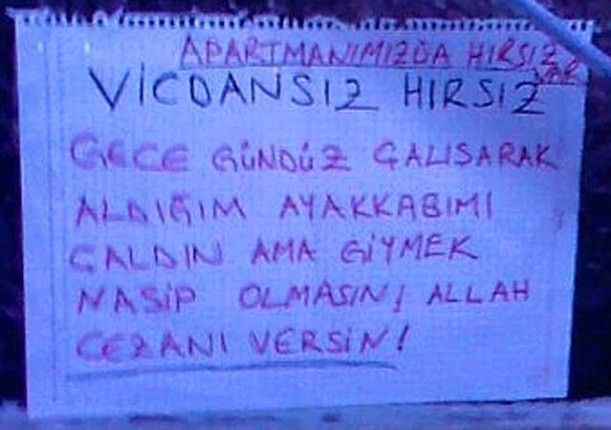 APARTMANIMIZDA HIRSIZ VAR
VİCDANSIZ HIRSIZ
GECE GÜNDÜZ ÇALIŞARAK
ALDIĞIM AYAKKABIMI
ÇALDIN AMA GİYMEK
NASİP OLMASIN! ALLAH
CEZANI VERSİN!